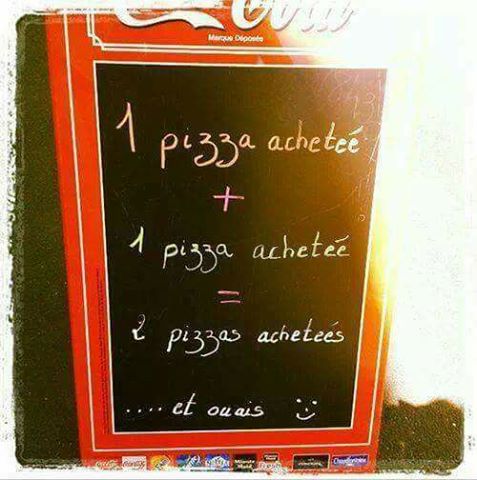 Cola
Marque Déposée
1 pizza acheteé
+
1 pizza acheteé
=
2 pizzas acheteés
.... et ouais :)